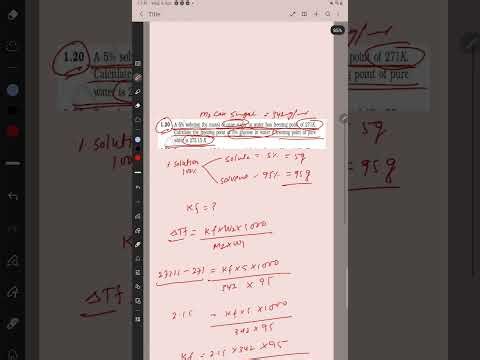 Title
85%
M2 cane sugar = 342 g/
1.20 A 5% solution (by mass) of cane sugar in water has freezing point of 271K.
Calculate the freezing point of 5% glucose in water if freezing point of pure
water is 273.15 K.
solution
100%
solute = 5% = 5g
solvent - 95% = 95g
Kf = ?
ΔTf = Kf × W2 × 1000
M2 × W1
273.15 - 271 = Kf × 5 × 1000
342 × 95
2.15 = Kf × 5 × 1000
342 × 95
Kf = 2.15 × 342 × 95
1.20 A 5% solu
Calculate
water is 2
of 271K.
point of pure
5g
95g
ΔTf